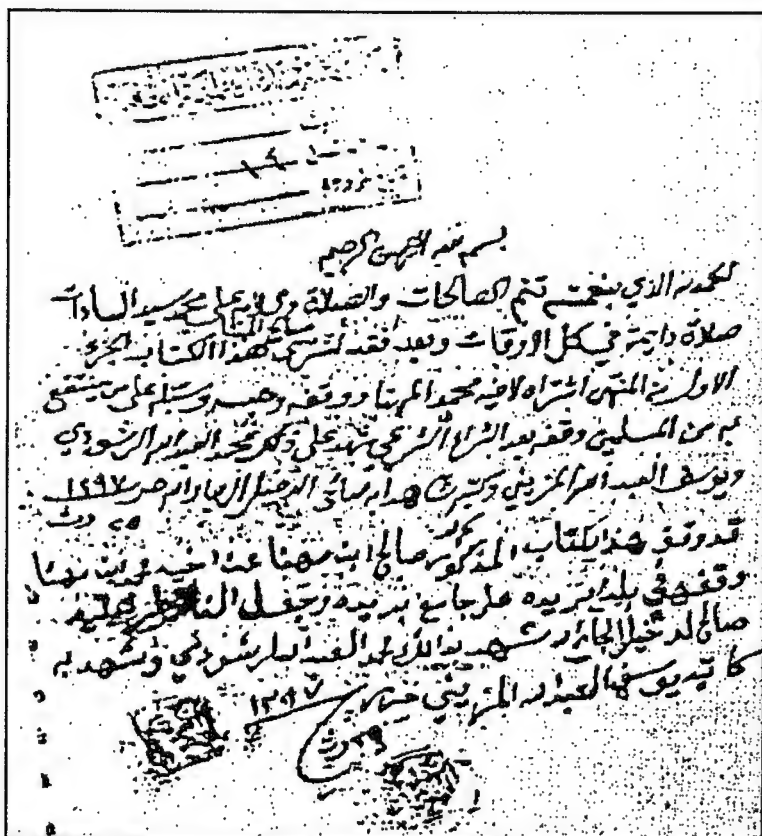 بسم الله الرحمن الرحيم
الحمد لله الذي بنعمته تتم الصالحات والصلاة والسلام على محمد سيد السادات
صلاة دايمة في كل الاوقات وبعد فقد اشترى صالح المهنا هذا الكتاب الجزء
الاول من المنتهى اشتراه لاخيه محمد المهنا ووقفه وحبسه وسبله على من ينتفع
به من المسلمين وقفه بعد الشراء الشرعي شهد على ذلك محمد العبد الله الرشودي
ويوسف العبد الله المزيني وكتبه شاهد به صالح الدخيل الجار الله حرر ١٢٩٧
٢٥
قد وقف هذا الكتاب المذكور صالح ابن مهنا عن اخيه محمد ابن مهنا
وقفه في بلد بريده على جامع بريده وجعل الناظر عليه
صالح الدخيل الجار الله شهد بذالك محمد العبد الله الرشودي وشهد به
كاتبه يوسف العبد الله المزيني
١٢٩٧